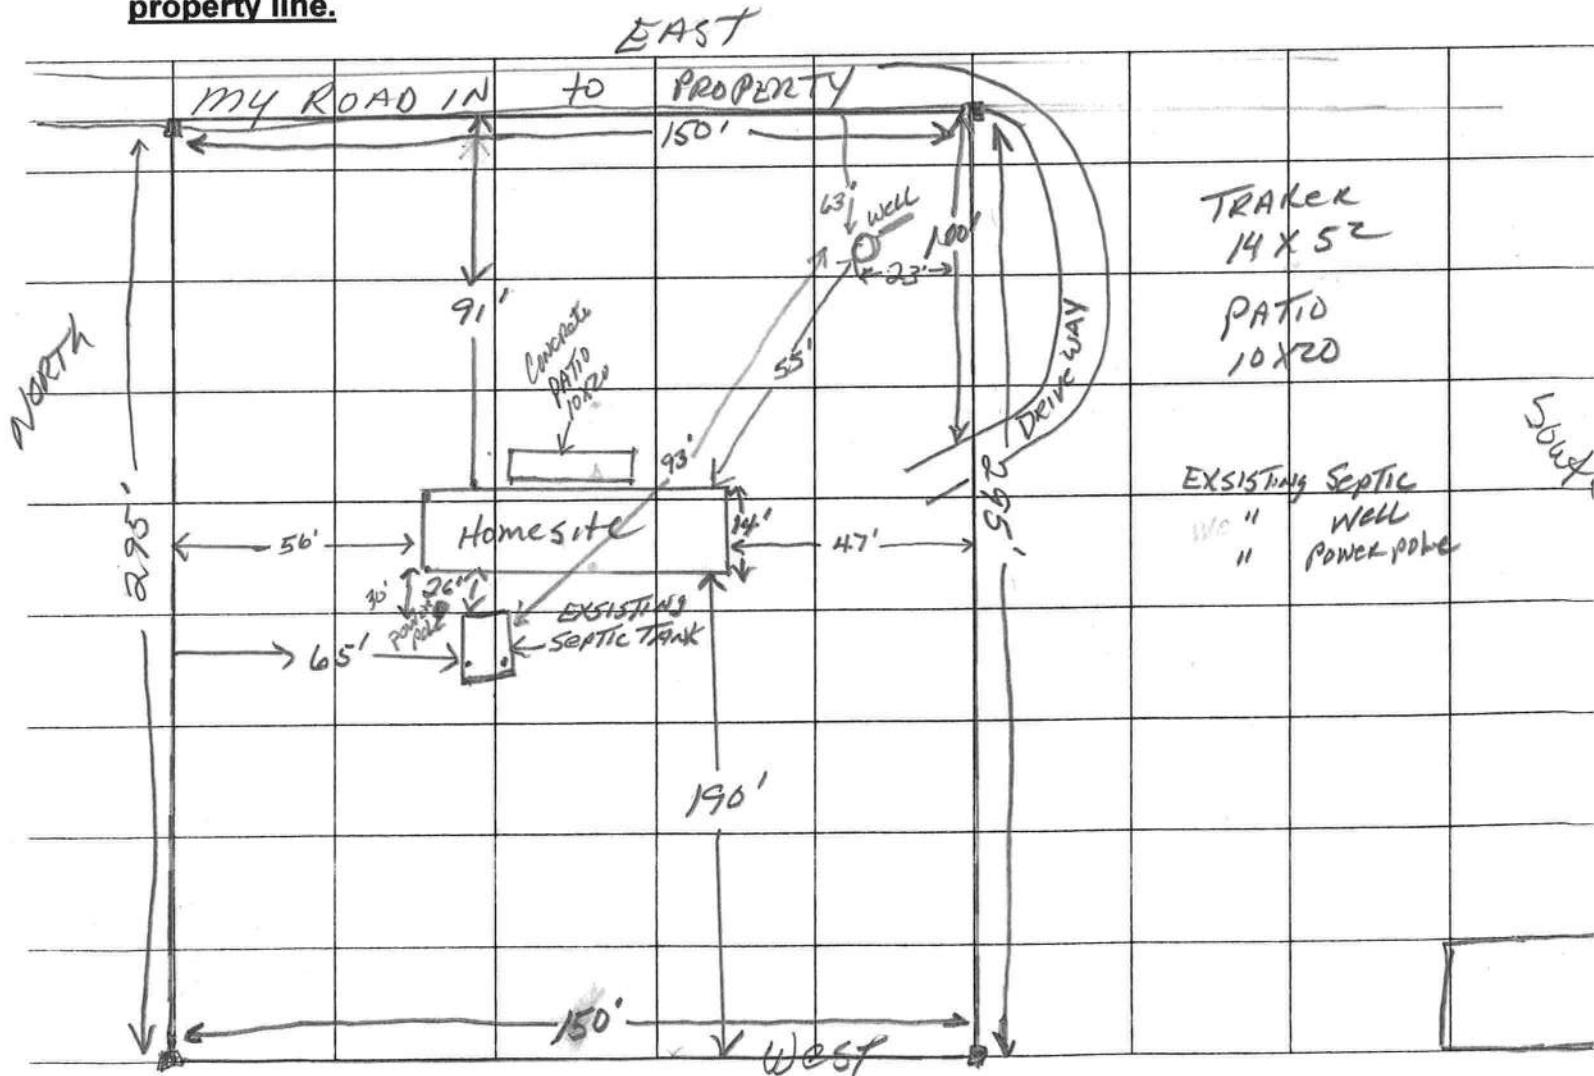 property line.
EAST
MY ROAD IN to PROPERTY
150'
63'
well
100'
23'
TRAKER
14 X 52
PATIO
10X20
91'
Concrete
PATIO
10X20
55'
DRIVEWAY
NORTH
South
295'
93'
295'
EXSISTING Septic
" WELL
" POWER POLE
56'
Homesite
14'
47'
30'
26'
POWER
POLE
EXSISTING
SEPTIC TANK
65'
190'
150'
West